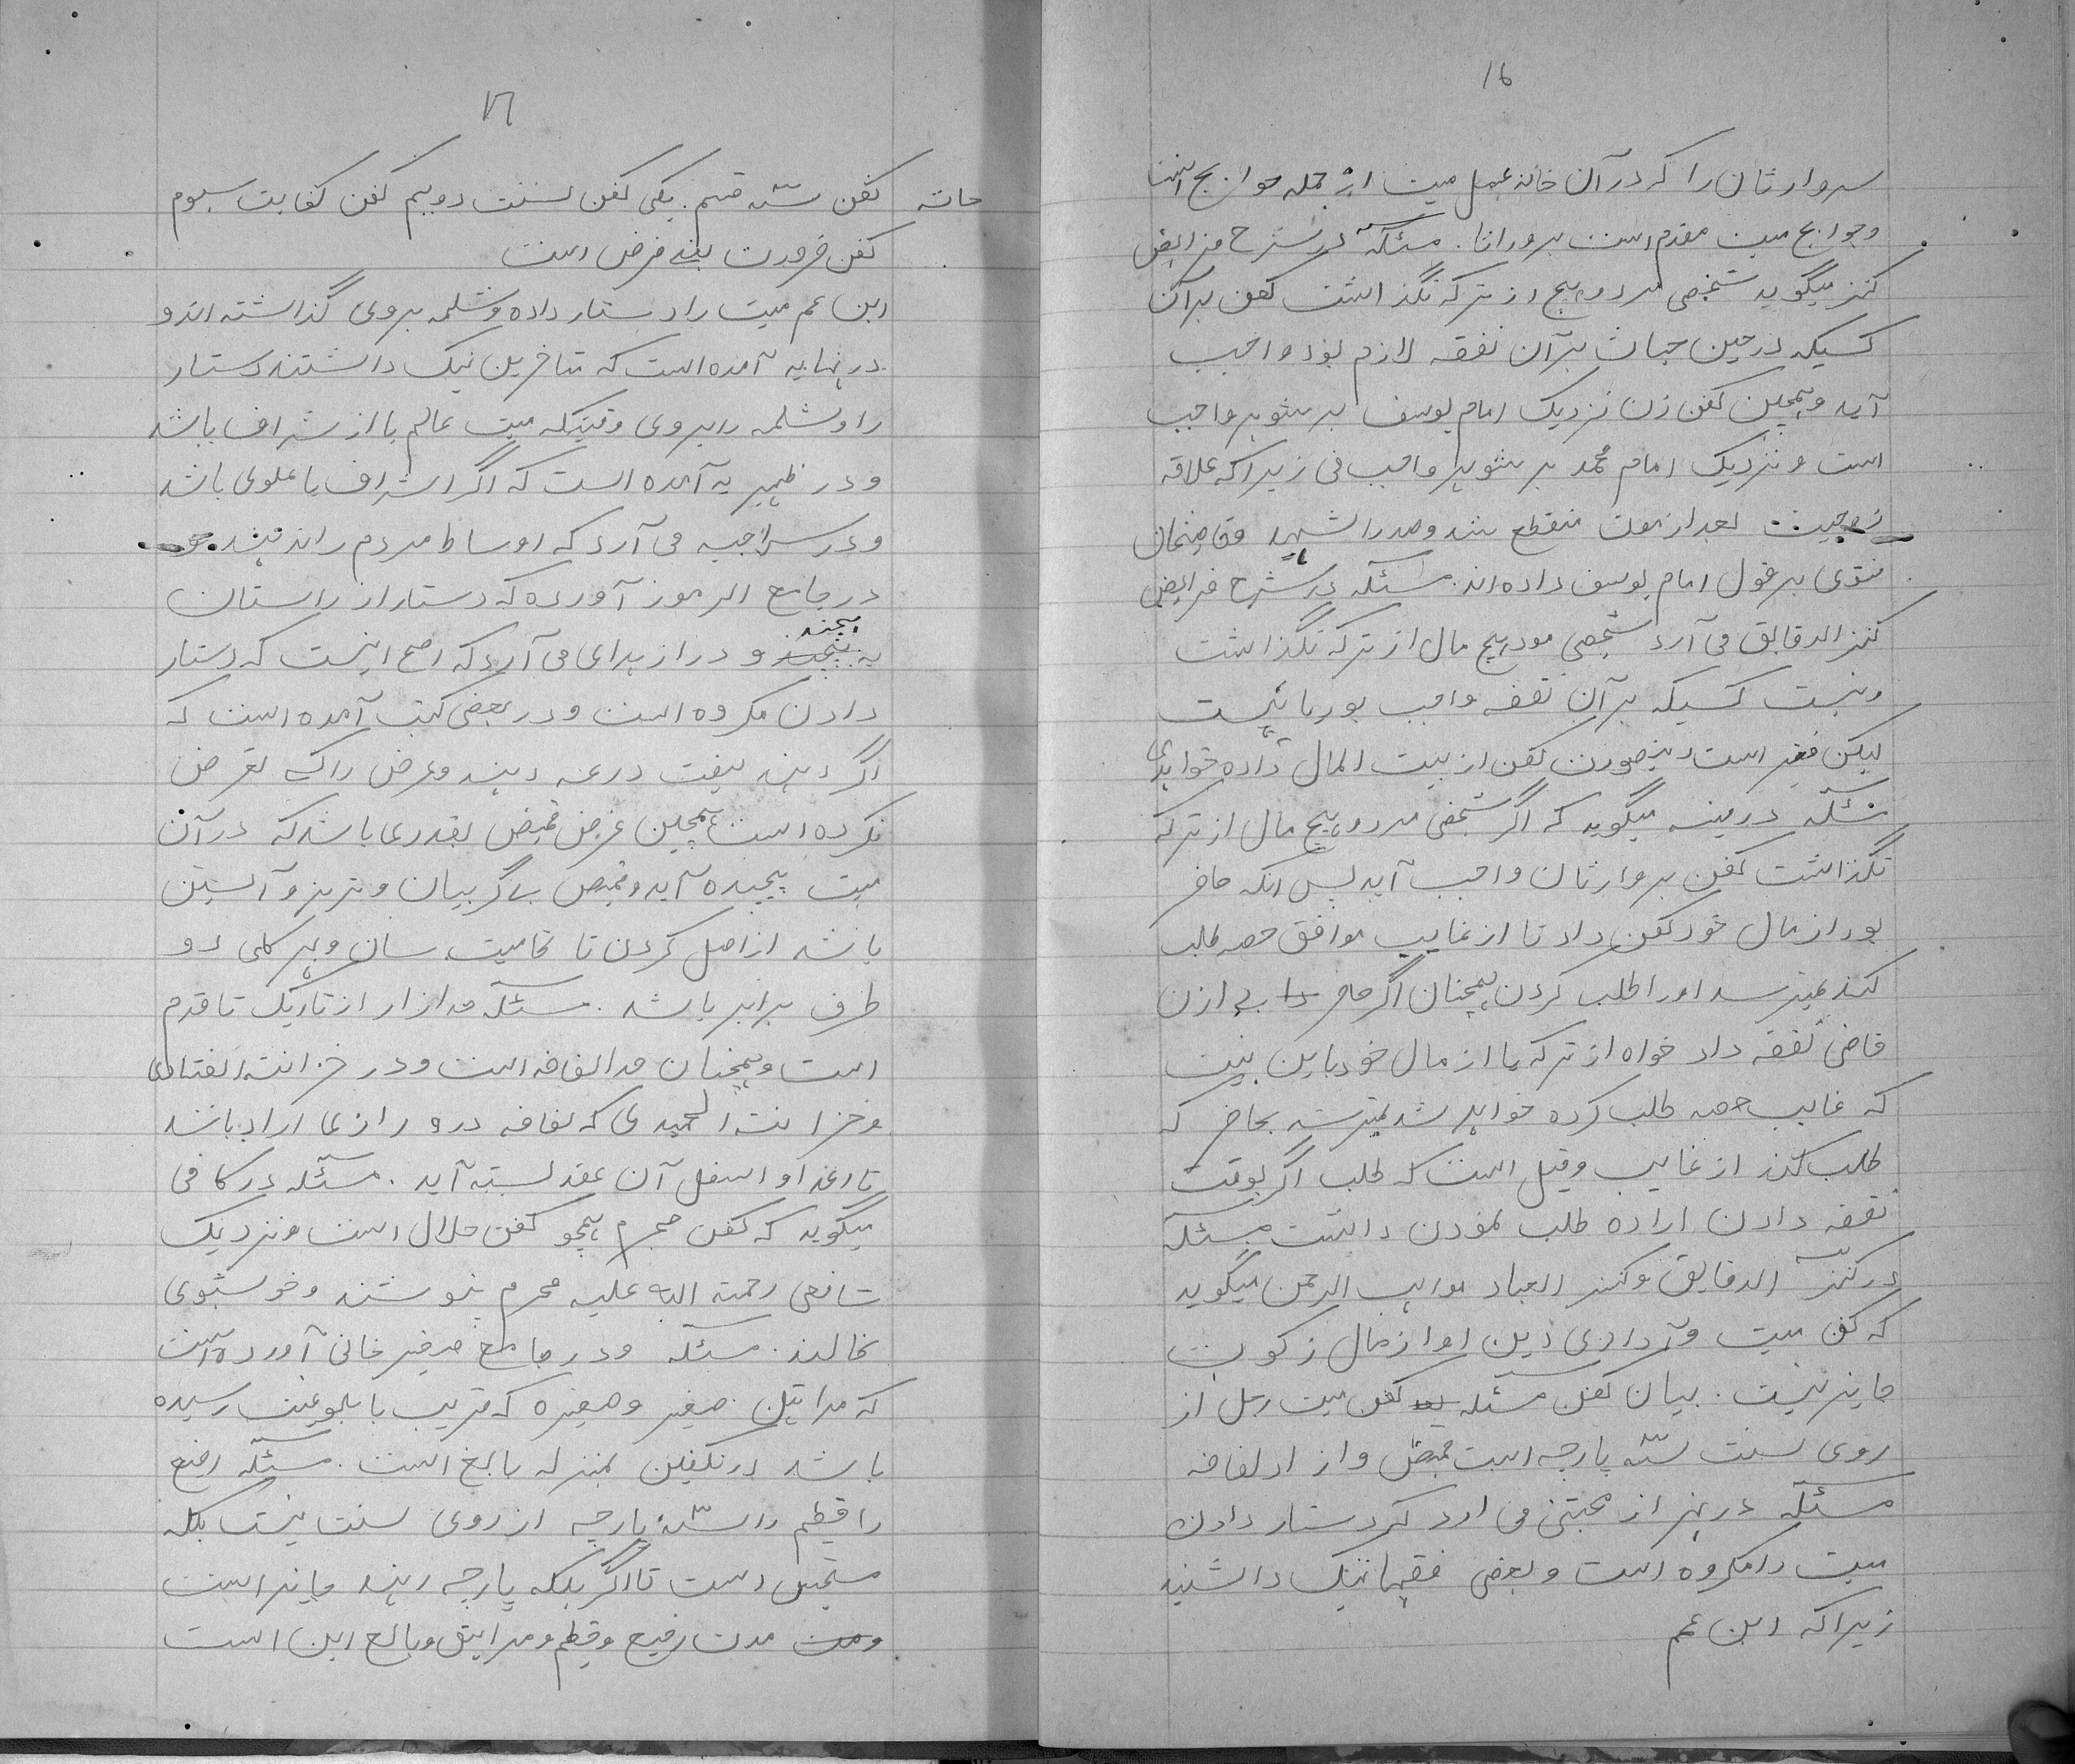 ۱۶
سروارثان را که در آن خانه غسل میت از جمله حوایج است
و حوایج میت مقدم است بر ورثا. مسئله در شرح فرایض
کنز میگوید شخصی مرد و هیچ از ترکه نگذاشت کفن بر آن
کسیکه در حین حیات بر آن نفقه لازم بود واجب
آید و همچنین کفن زن نزدیک امام یوسف بر شوهر واجب
است و نزدیک امام محمد بر شوهر واجب نی زیرا که علاقه
زوجیت بعد از موت منقطع شد و صدر الشهید و قاضیخان
فتوی بر قول امام یوسف داده اند. مسئله در شرح فرایض
کنز الدقایق می آرد شخصی مرد هیچ مال از ترکه نگذاشت
و نیست کسیکه بر آن نفقه واجب بود یا نیست
لیکن فقیر است درینصورت کفن از بیت المال داده خواهد
مسئله در منیه میگوید که اگر شخصی مرد و هیچ مال از ترکه
نگذاشت کفن بر وارثان واجب آید پس آنکه حاضر
بود از مال خود کفن داد تا از غایب موافق حصه طلب
کند نمیرسد او را طلب کردن همچنان اگر حاضر بی ازن
قاضی نفقه داد خواه از ترکه یا از مال خود باین نیت
که غایب حصه طلب کرده خواهد شد نمیرسد بحاضر که
طلب کند از غایب و قیل است که طلب اگر بوقت
نفقه دادن اراده طلب نمودن داشت مسئله
در کنز الدقایق و کنز العباد مواهب الرحمن میگوید
که کفن میت و آدای دین او از مال زکوت
جایز نیست. بیان کفن مسئله کفن میت رجل از
روی سنت سه پارچه است قمیص و ازار لفافه
مسئله در نهر از مجتبی می ارد که دستار دادن
میت را مکروه است و بعضی فقها نیک داشتند
زیرا که ابن عم
۱۷
حاشه کفن سه قسم. یکی کفن سنت دویم کفن کفایت سیوم
کفن ضرورت یعنی فرض است
ابن عم میت را دستار داده و شمله بروی گذاشته اند و
در نهایه آمده است که متاخرین نیک داشتند دستار
را و شمله را بروی وقتیکه میت عالم یا از شراف باشد
و در ظهیریه آمده است که اگر اشراف یا علوی باشد
و در سراجیه می آرد که اوساط مردم را ندهند
در جامع الرموز آورده که دستار از راستان
به پیچند و در از هدای می آرد که اصح اینست که دستار
دادن مکروه است و در بعضی کتب آمده است که
اگر دهند هفت درعه دهند و عرض را کسی تعرض
نکرده است همچنین عرض قمیص بقدری باشد که در آن
میت پیچیده آید و قمیص بی گریبان و تریز و آستین
باشد از اصل کردن تا قامیت سان و هر کلی دو
طرف برابر باشد. مسئله مد ازار از تاریک تا قدم
است و همچنان مد الفافه است و در خزانت الفتاوی
و خزانت الحمیدی که لفافه در و رازی ازار باشد
تا اعلا و اسفل آن عقد بسته آید. مسئله در کافی
میگوید که کفن محرم همچو کفن حلال است و نزدیک
شافعی رحمته الله علیه محرم نپوشند و خوشبوی
نمالند. مسئله و در جامع صغیر خانی آورده است
که مراتهق صغیر و صغیره که قریب با بلوغت رسیده
باشد در تکفین بمنزله بالغ است. مسئله رضیع
را فطیم را سه پارچه از روی سنت نیست بلکه
مستحسن است تا اگر یکه پارچه دهند جایز است
مدت رضیع و فطیم و مراهق و بالغ این است